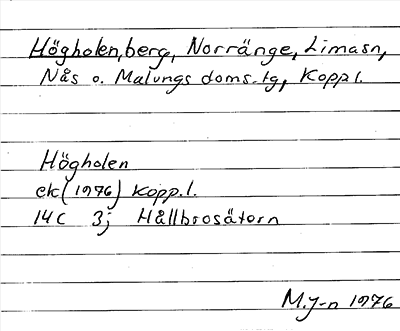 Högholen, berg, Norränge, Limasn,
Nås o. Malungs doms.tg, Koppl.
Högholen
ek (1976) Koppl.
14C 3j Hållbrosätern
M.J-n 1976